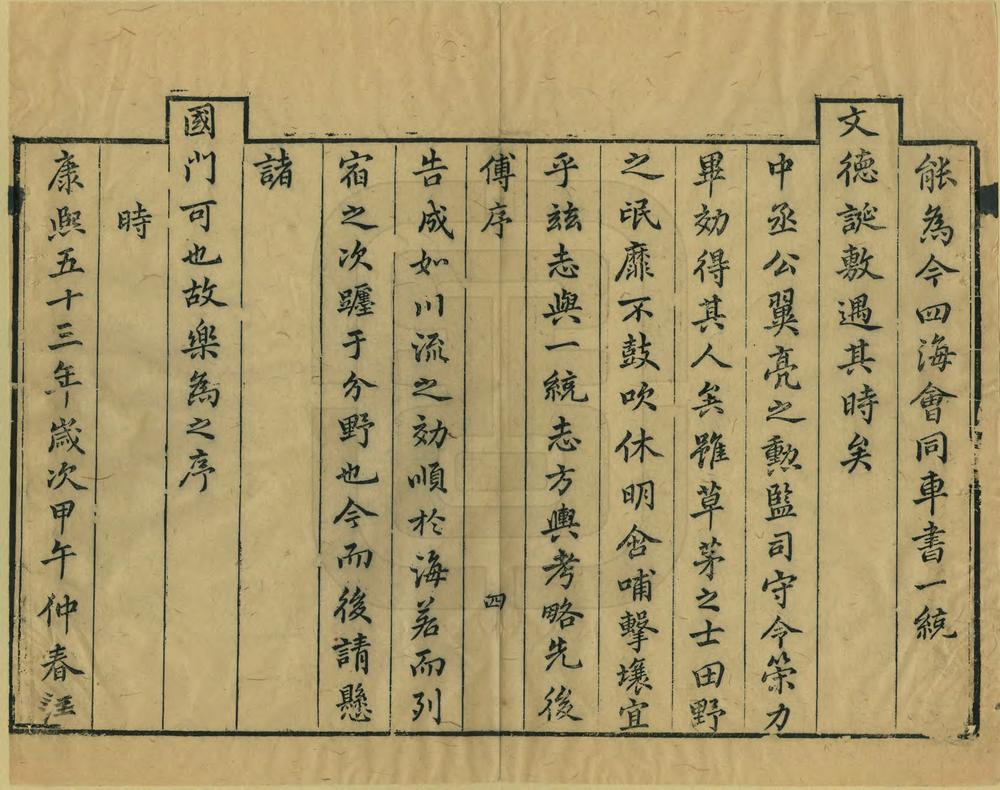 能為今四海會同車書一統
文德誕敷遇其時矣
中丞公翼亮之勲監司守令策力
畢効得其人矣雖草茅之士田野
之氓靡不鼓吹休明含哺擊壤宜
乎茲志與一統志方輿考略先後
傅序 四
告成如川流之効順於海若而列
宿之次躔于分野也今而後請懸
諸
國門可也故樂為之序
時
康熙五十三年歲次甲午仲春